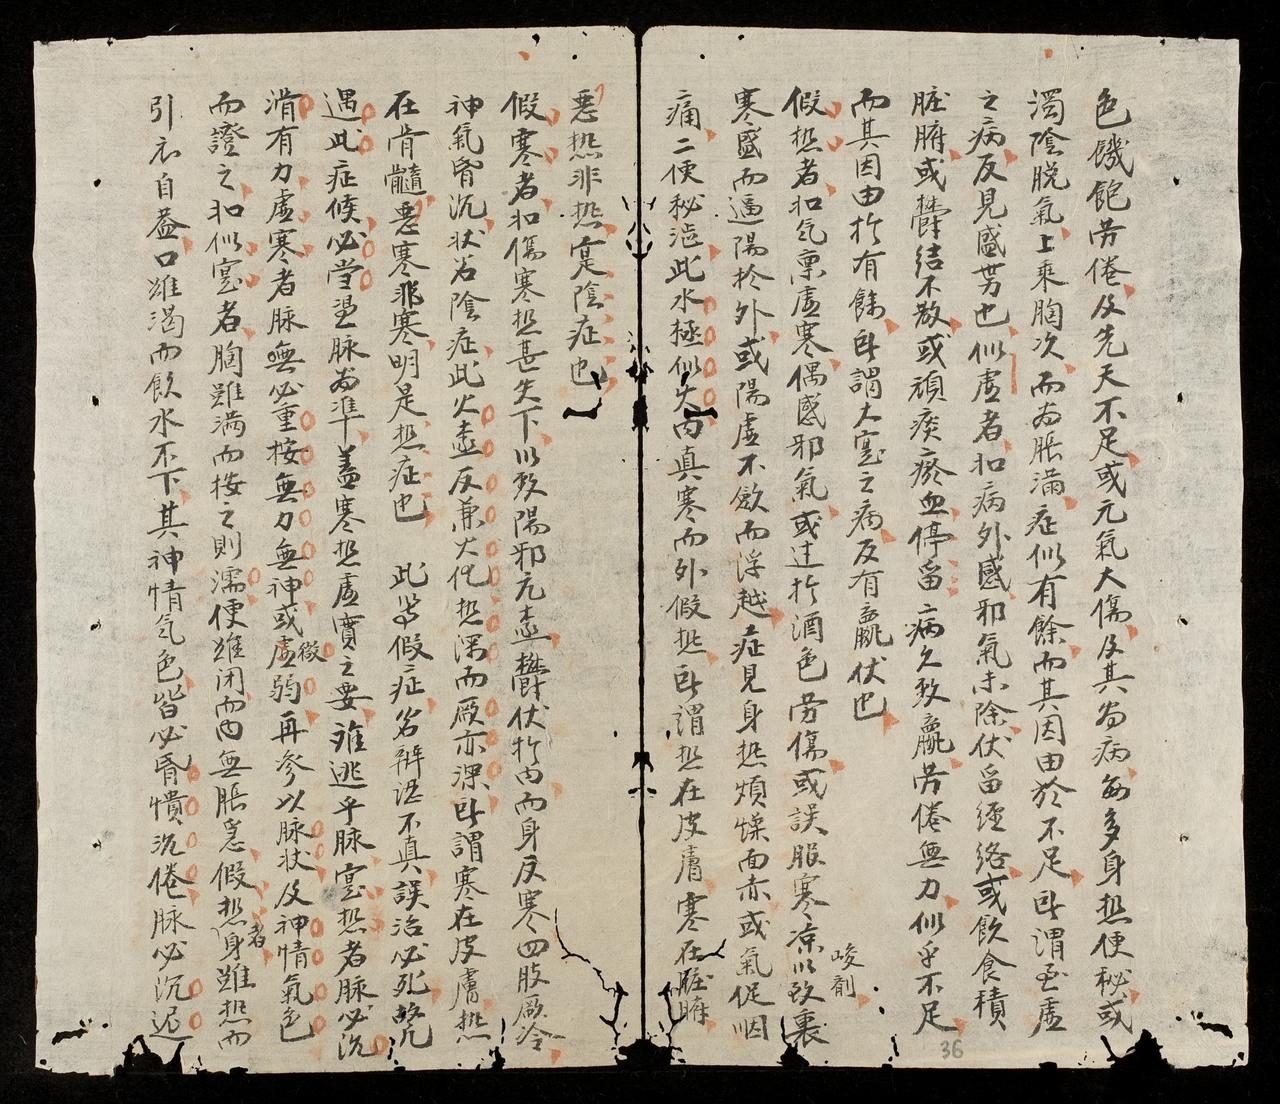 色饑飽劳倦及先天不足或元氣大傷及其為病每多身热便秘或
濁陰脱氣上乘胸次而為脹滿症似有餘而其因由於不足卧謂至虚
之病反見盛势也似虚者如病外感邪氣未除伏畱經络或飲食積
脏腑或欝結不散或頑痰瘀血停畱病久致羸劳倦無力似乎不足
而其因由扵有餘卧謂大寔之病反有羸伏也
假热者如氣禀虚寒偶感邪氣或过扵酒色劳傷或誤服寒凉以致裏
峻剤
寒盛而逼陽扵外或陽虚不斂而浮越症見身热煩燥面赤或氣促咽
痛二便秘澁此水極似火内真寒而外假热卧謂热在皮膚寒在脏腑
惡热非热寔陰症也
假寒者如傷寒热甚失下以致陽邪亢盛欝伏扵内而身反寒四肢厥冷
神氣昏沉状若陰症此火盛反兼水化热深而厥亦深卧謂寒在皮膚热
在骨髓惡寒非寒明是热症也 此等假症若辨認不真誤治必死故凡
遇此症候必当思脉為準盖寒热虚實之要难逃乎脉寔热者脉必沉
滑有力虚寒者脉無必重按無力無神或虚微弱再参以脉状及神情氣色
而證之如似寔者胸雖满而按之則濡便雖闭而内無脹急假热者身雖热而
引衣自盖口雖渴而飲水不下其神情氣色皆必昏憒沉倦脉必沉迟
36